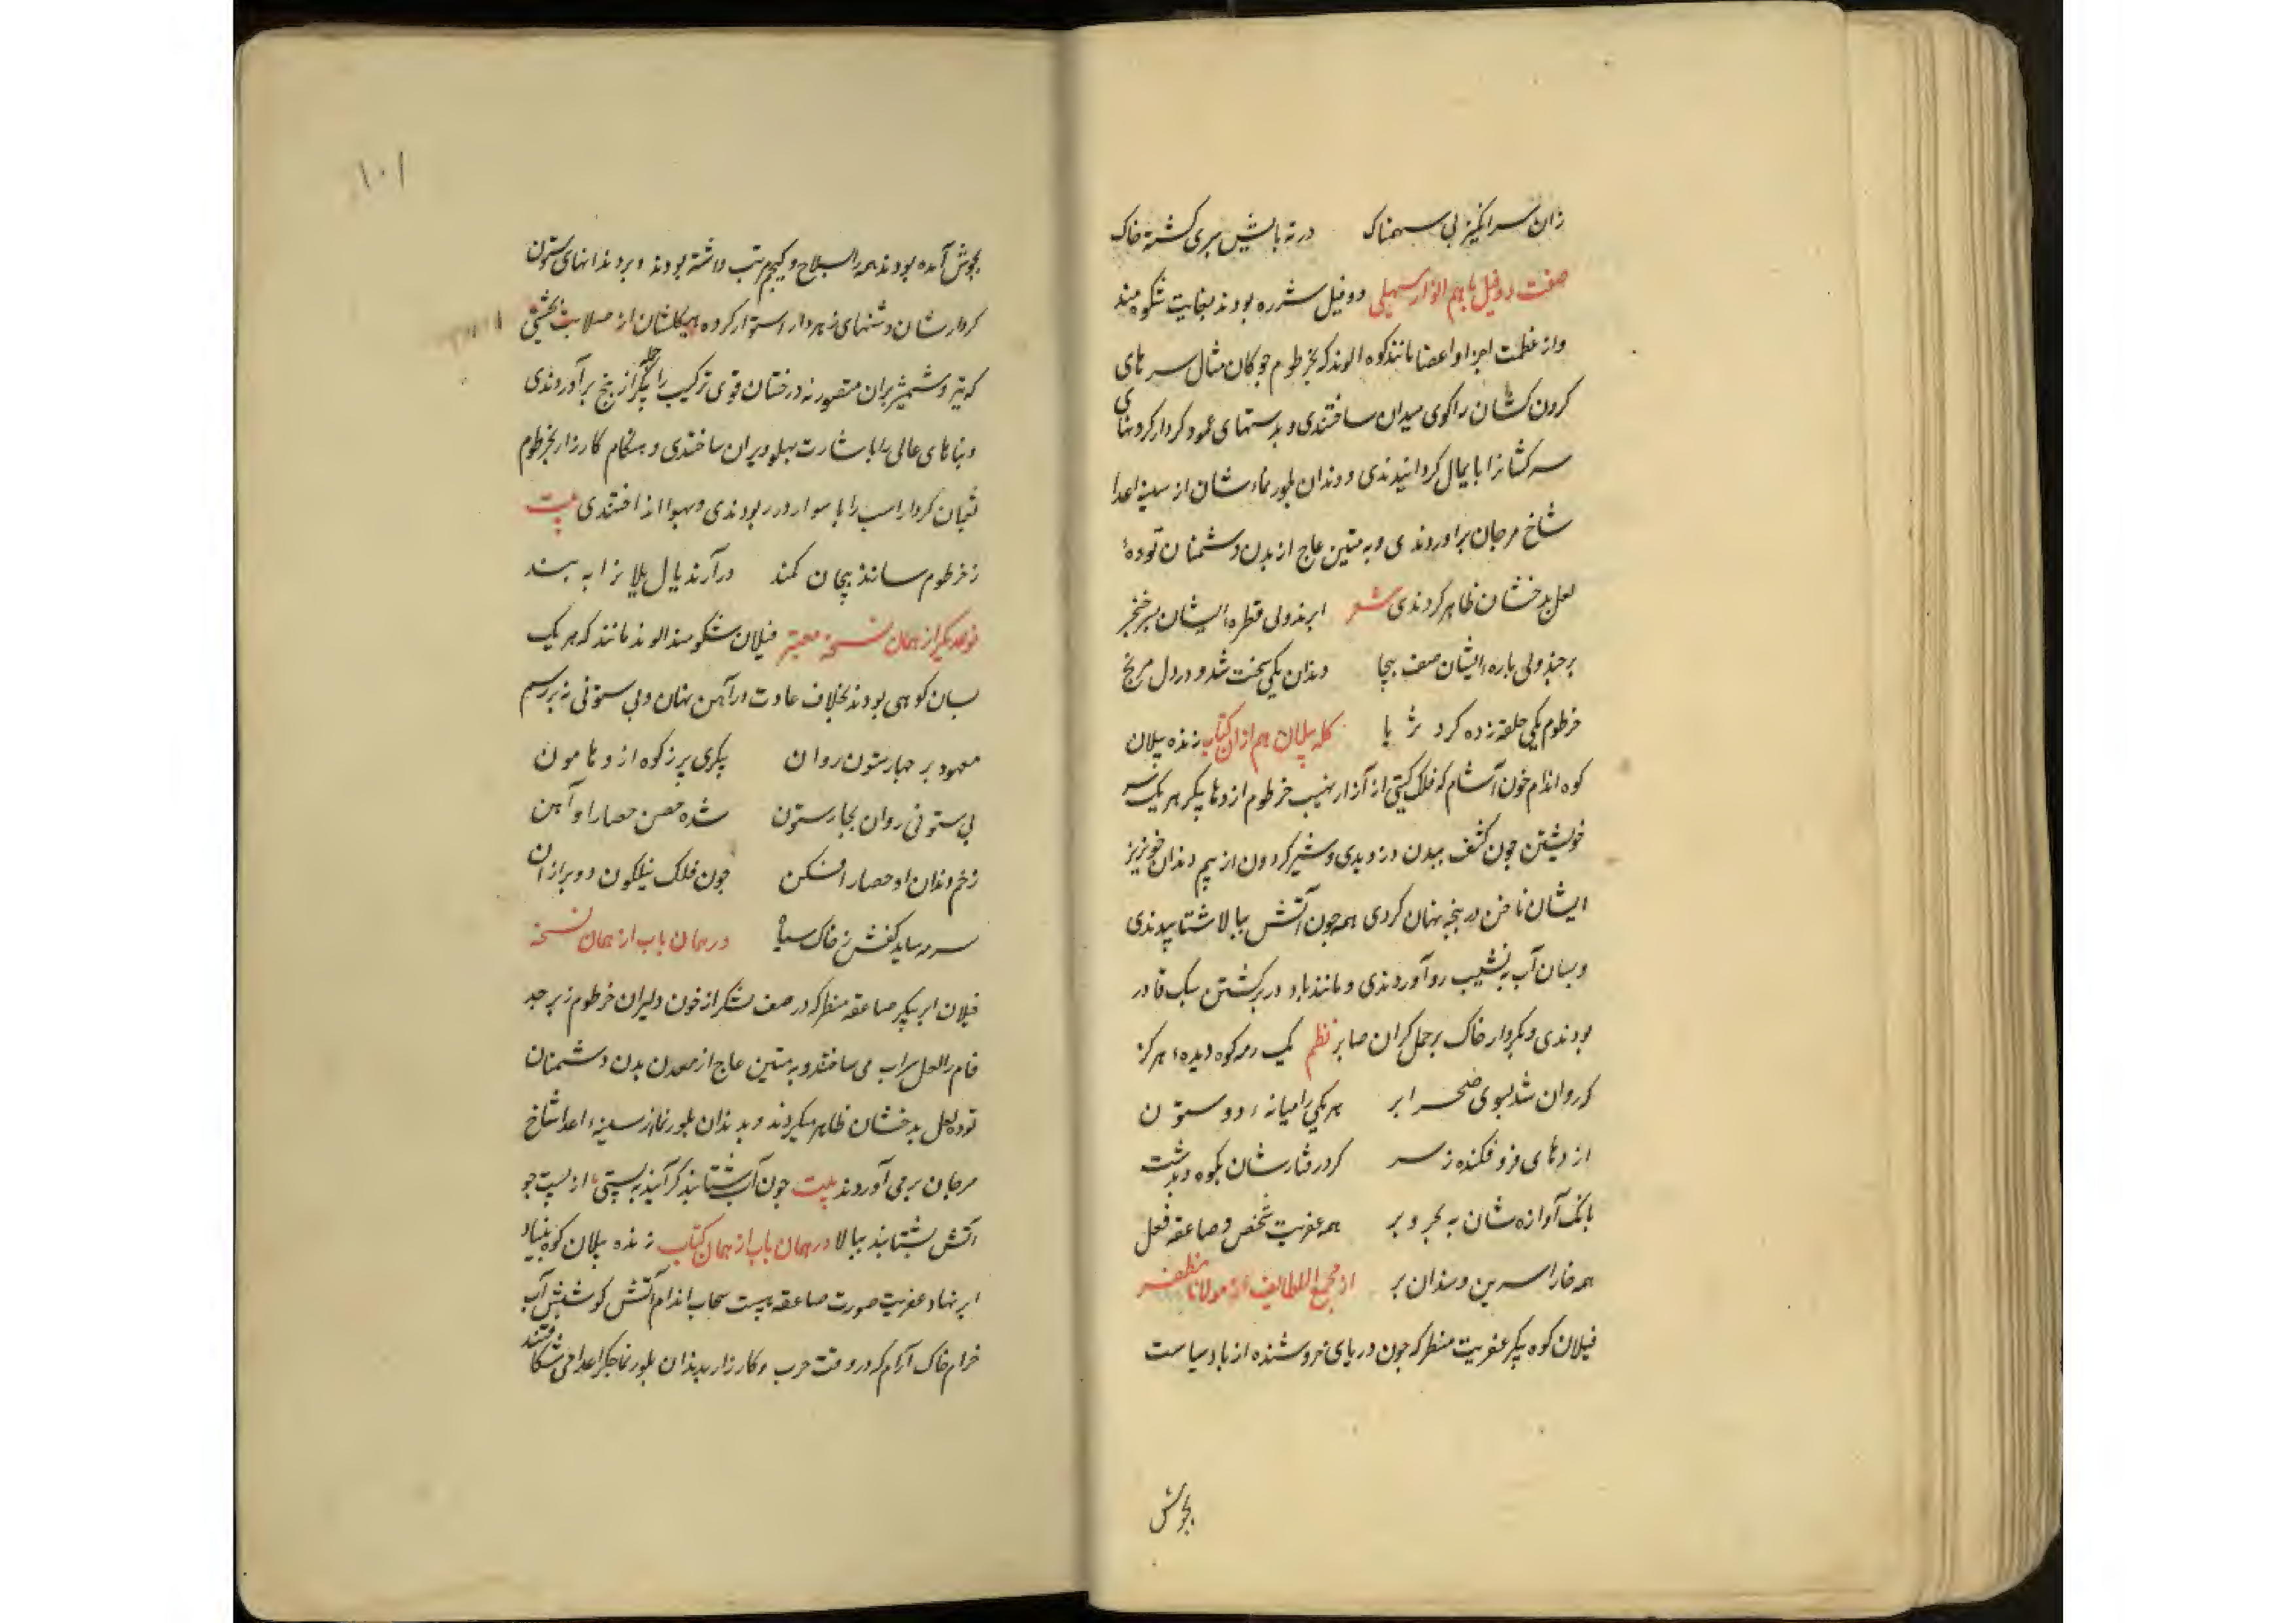 زان سر انکیز بی سهمناک در ته بایش سری کشته خاک
صفت دو فیل باهم انوار سهیلی دو فیل شرزه بودند بغایت شکوهمند
و از عظمت اجزا و اعضا مانند کوه الوند که بخرطوم چوکان مثال سرهای
کردن کشان را کوی میدان ساختندی و بدستهای عمود کردار کردنهای
سرکشانرا پایمال کردانیدندی و دندان بلور نماء شان از سینه اعدا
شاخ مرجان براوردندی و به متین عاج از بدن دشمنان تودهٔ
لعل بدخشان ظاهر کردندی شعر ابرند ولی قطره ایشان سر خنجر
برجند ولی باره ایشان صف بیجا دندان یکی سخت شد و در دل مریخ
خرطوم یکی حلقه زده کرد ثریا کله پیلان هم از ان کتاب زنده پیلان
کوه اندام خون آشام که فلک کیتی از آزار نهیب خرطوم اژدها پیکر هر یک سر
خویشتن چون کشف ببدن دزدیدی و شیر کردون از بیم دندان خونریز
ایشان ناخن در پنجه پنهان کردی همچون آتش ببالا شتابیدندی
و بسان آب به نشیب رو آوردندی و مانند باد در برکشتن سبک قادر
بودندی و بکردار خاک بر حمل کران صابر نظم یک رمه کوه دیده هرکز
که روان شد بسوی صحرا بر هر یکی را میانه دو ستون
اژدهای فرو فکنده ز سر کرد رفتارشان بکوه و بدشت
بانک آوازه شان به بحر و بر همه عفریت شخص و صاعقه فعل
همه خارا سرین و سندان بر از مجمع اللطایف از مولانا مظفر
فیلان کوه پیکر عفریت منظر که چون دریای خروشنده از باد سیاست
بجوش
۱۰۱
بجوش آمده بودند همه را بسلاح و کیجم مرتب داشته بودند و بر دندانهای ستون
کردارشان دشنهای زهردار استوار کرده هیکلشان از صلابت بحیثی
که تیر و شمشیر بران متصور نه درختان قوی ترکیب را بیک حمله از بیخ برآوردندی
و بناهای عالی را باشارت پهلو ویران ساختندی و بهنکام کارزار بخرطوم
ثعبان کردار اسب را با سوار در ربودندی و بهوا انداختندی بیت
ز خرطوم سازند پیچان کمند درآرند یال یلانرا به بند
نوع دیکر از همان نسخه معتبر فیلان شکومند الوند مانند که هر یک
بسان کوهی بودند بخلاف عادت در آهن نهان و بی ستونی نه بر رسم
معهود بر چهار ستون روان پیکری پر ز کوه اژدها مون
بی ستونی روان بچار ستون شده حصن حصار او آهن
زخم دندان او حصار افکن چون فلک نیلکون و دوبر ازان
سرمه ساید کفش ز خاک سیاه در همان باب از همان نسخه
فیلان ابر پیکر صاعقه منظر که در صف لشکر از خون دلیران خرطوم زبرجد
فام را لعل سراب می ساختند و به متین عاج از معدن بدن دشمنان
توده لعل بدخشان ظاهر میکردند و بدندان بلور نما از سینه اعدا شاخ
مرجان برمی آوردند بیت چون آب شتابند کر آیند به پستی از پست چو
آتش بشتابند ببالا در همان باب از همان کتاب زنده پیلان کوه بنیاد
ابر نهاد عفریت صورت صاعقه هیبت سحاب اندام آتش کوشش آب
خرام خاک آرام که در وقت حرب و کارزار بدندان بلور نما جکر اعدا می شکافتند